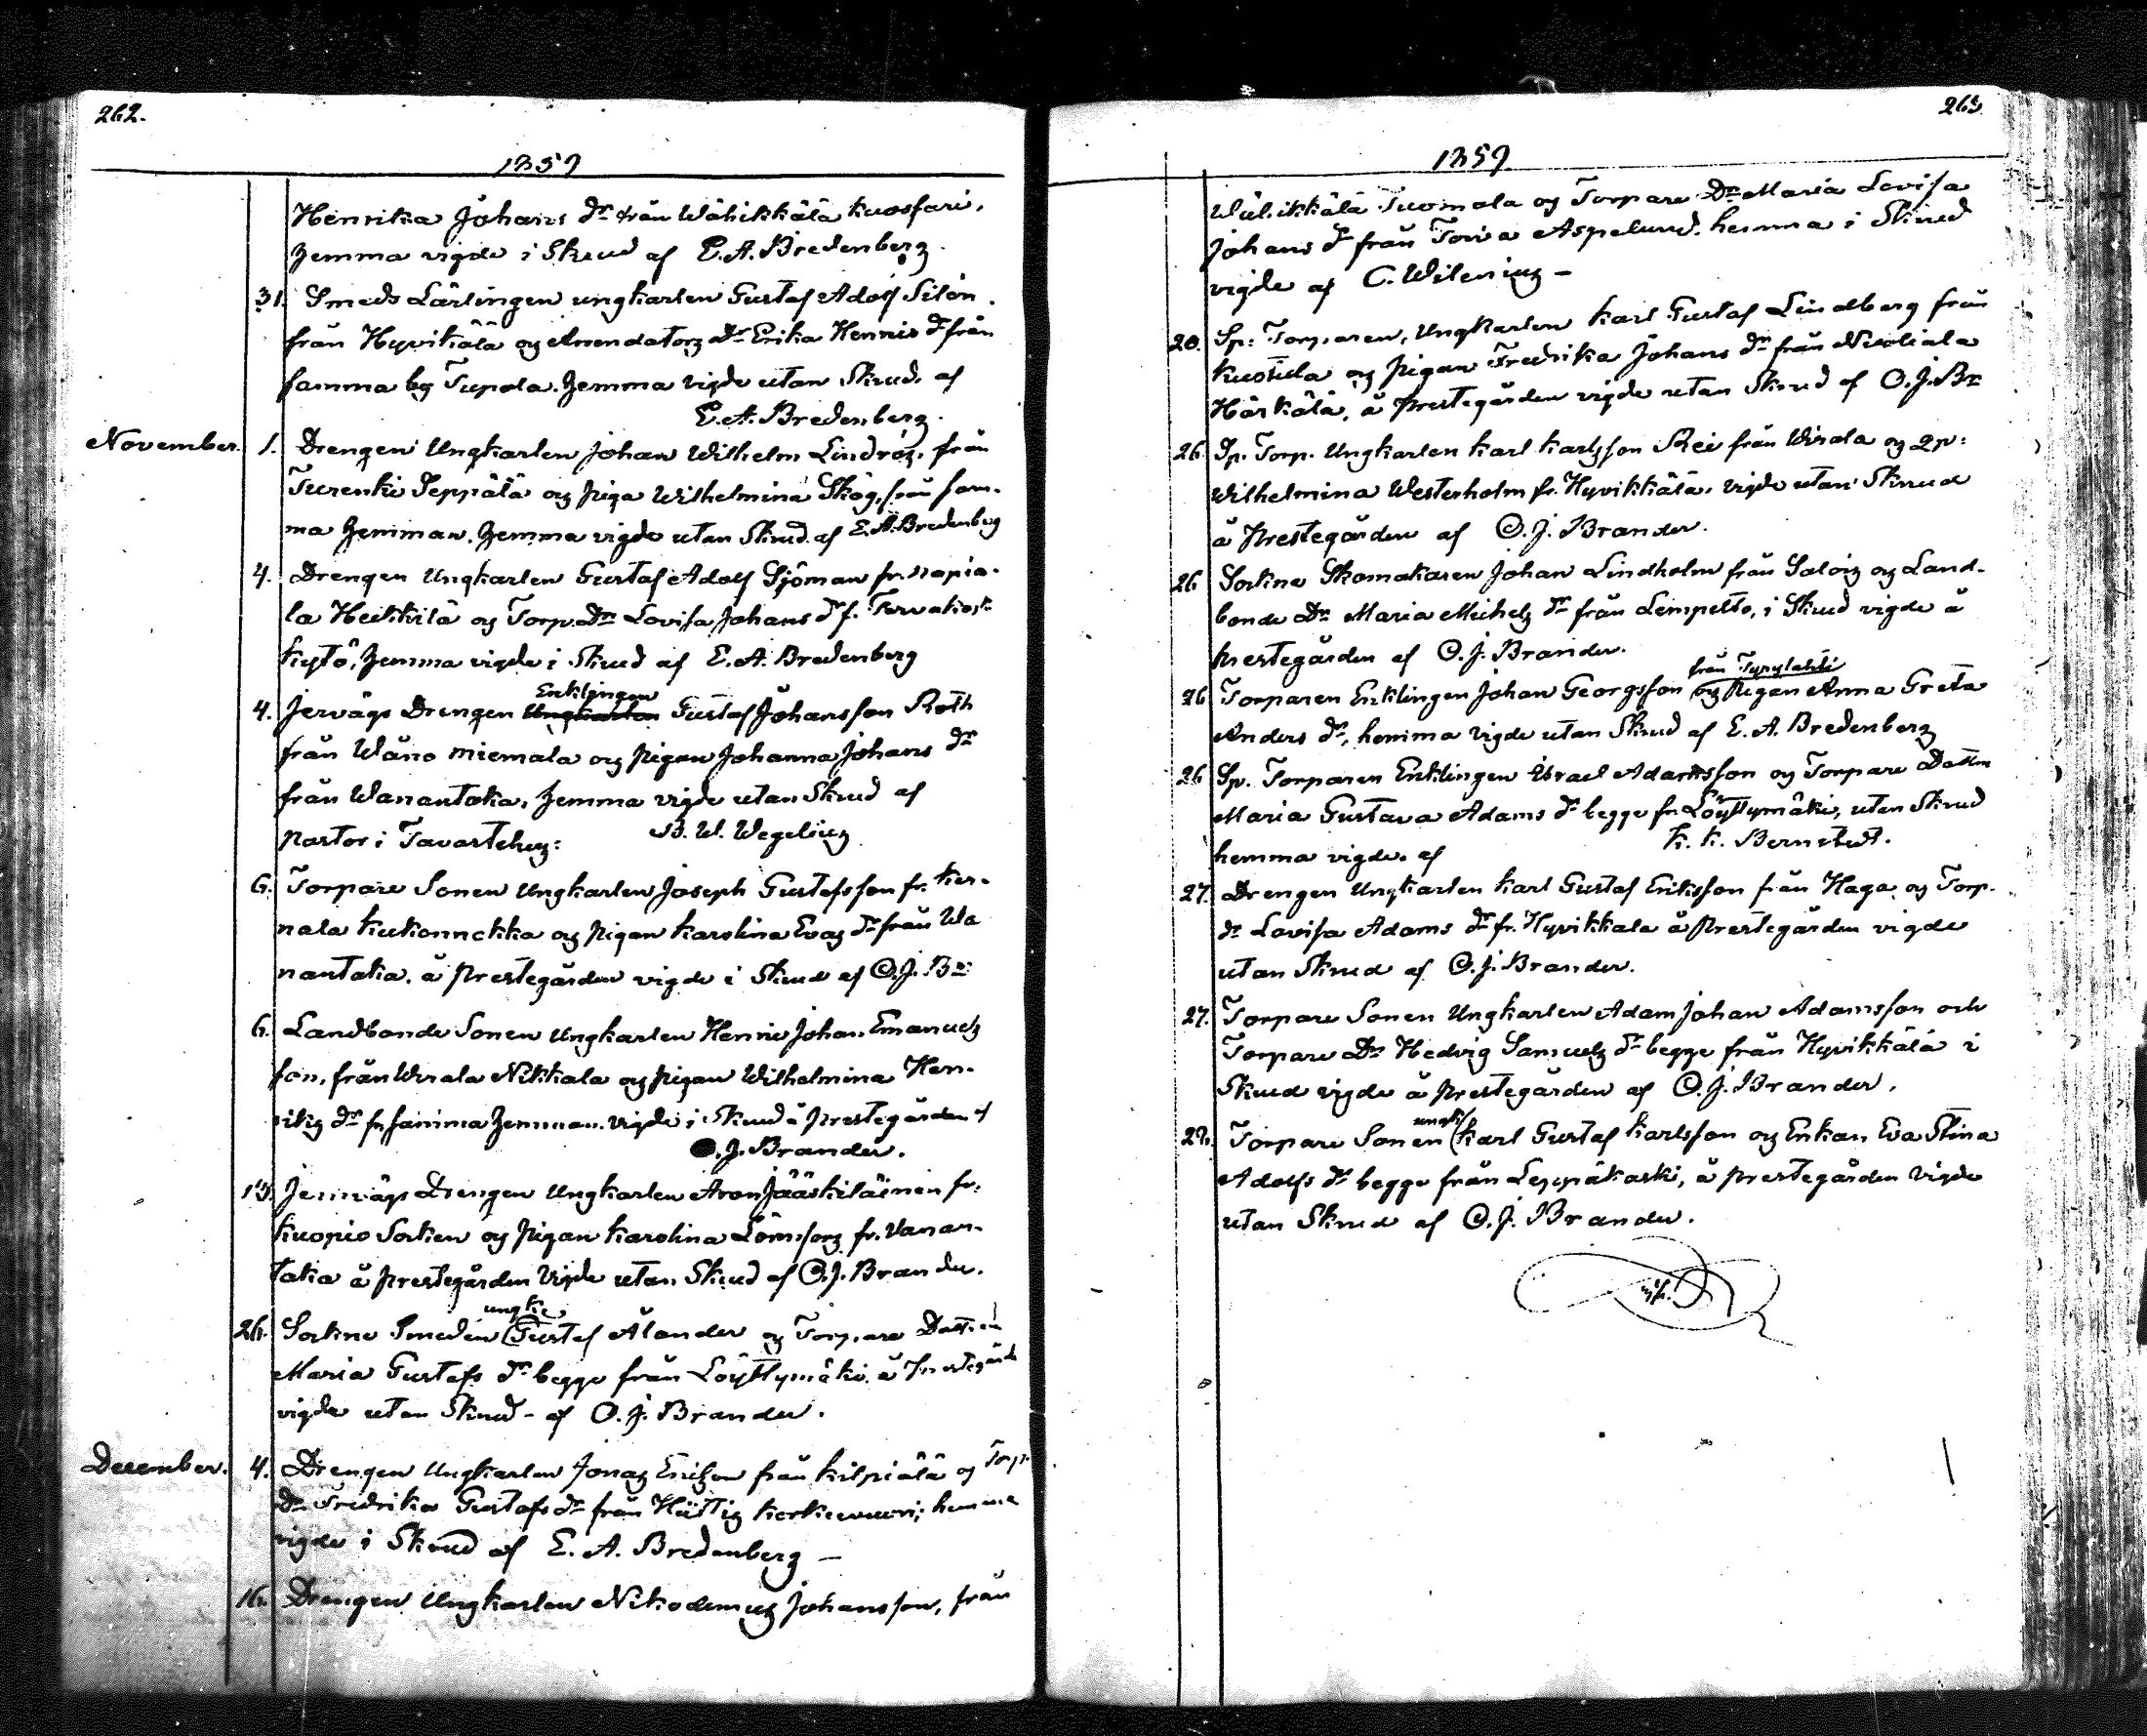 262.
1859
Henrika Johans dr från Wähikkälä Kuosfari,
hemma vigde i Skrud af E. A. Bredenberg.
31. Smeds Lärlingen ungkarlen Gustaf Adolf Silén
från Hyvikälä og Arrendators dr Erika Henriks dr från
samma by Tupola. hemma vigde utan Skrud, af
E. A. Bredenberg.
November. 1. Drengen Ungkarlen Johan Wilhelm Lindros, från
Turenki Seppälä og piga Wilhelmina Skog, från sam-
ma hemman. hemma vigde utan Skrud af E. A. Bredenberg
4. Drengen Ungkarlen Gustaf Adolf Sjöman fr. Napia-
la Heikkilä og Torp. Dr Lovisa Johans dr f. Tervakosk
Kytö, hemma vigde i Skrud af E. A. Bredenberg
Enklingen
4. Jernvägs Drengen Ungkarlen Gustaf Johansson Roth
från Wäno Miemala og pigan Johanna Johans dr
från Wanantaka, hemma vigde utan Skrud af
pastor i Tavastehus: B. W. Wegelius
6. Torpare Sonen Ungkarlen Joseph Gustafsson fr. Ker-
nala Kukonnokka og pigan Karolina Evas dr från Wa
nantaka. å prestegården vigde i Skrud af O. J. Br
6. Landbonde Sonen Ungkarlen Henric Johan Emanuels
son, från Wirala Nikkala og pigan Wilhelmina Hen-
riks dr fr. samma hemman. vigde i Skrud å prestegården af
O. J. Brander.
13. Jernvägs Drengen Ungkarlen Aron Jääskiläinen fr.
Kuopio Socken og pigan Karolina Lömfors fr. Vanan-
taka å prestegården vigde utan Skrud af O. J. Brander.
ungk.
26. Sockne Smeden Gustaf Ålander og Torpare Dottren
Maria Gustafs dr begge från Löyttymäki å prestegård
vigde utan Skrud - af O. J. Brander.
December. 4. Drengen Ungkarlen Jonas Ericsson från Kilpiälä og Torp
Dr Fredrika Gustafs dr från Hüttis hemma
vigde i Skrud af E. A. Bredenberg –
16. Drengen Ungkarlen Nikodemus Johansson, från
263
1859.
Tuomala og Torpare Dr Maria Lovisa
Johans dr från Aspelund. hemma i Skrud
vigde af C. Wilenius –
20. Sp: Torparen, Ungkarlen Karl Gustaf Lindberg från
Kustula og pigan Fredrika Johans dr från
Härkälä, å prestegården vigde utan Skrud af O. J. Br
26. Sp. Torp. Ungkarlen Karl Karlsson Rei från Wirala og Qp:
Wilhelmina Westerholm fr. Hyvikkälä, vigde utan Skrud
å prestegården af O. J. Brander.
26 Sockne Skomakaren Johan Lindholm från Salois og Land-
bonde Dr Maria Michels dr från Lempelto, i Skrud vigde å
prestegården af O. J. Brander.
från Tyrylahti
26 Torparen Enklingen Johan Georgsson og pigan Anna Greta
Anders dr, hemma vigde utan Skrud af E. A. Bredenberg
26 Sp. Torparen Enklingen Israel Adamsson og Torpare Dottren
Maria Gustava Adams dr begge fr. Löyttymäki, utan Skrud
hemma vigde. af K. K. Bernstedt.
27. Drengen Ungkarlen Karl Gustaf Eriksson från Haga og Torp.
dr Lovisa Adams dr fr. Hyvikkala å prestegården vigde
utan Skrud af O. J. Brander.
27. Torpare Sonen Ungkarlen Adam Johan Adamsson och
Torpare Dr Hedvig Samuels dr begge från Hyvikkälä i
Skrud vigde å prestegården af O. J. Brander.
ungk.
Torpare Sonen Karl Gustaf Karlsson og Enkan Eva Stina
Adolfs dr begge från Leppäkoski, å prestegården vigde
utan Skrud af O. J. Brander.